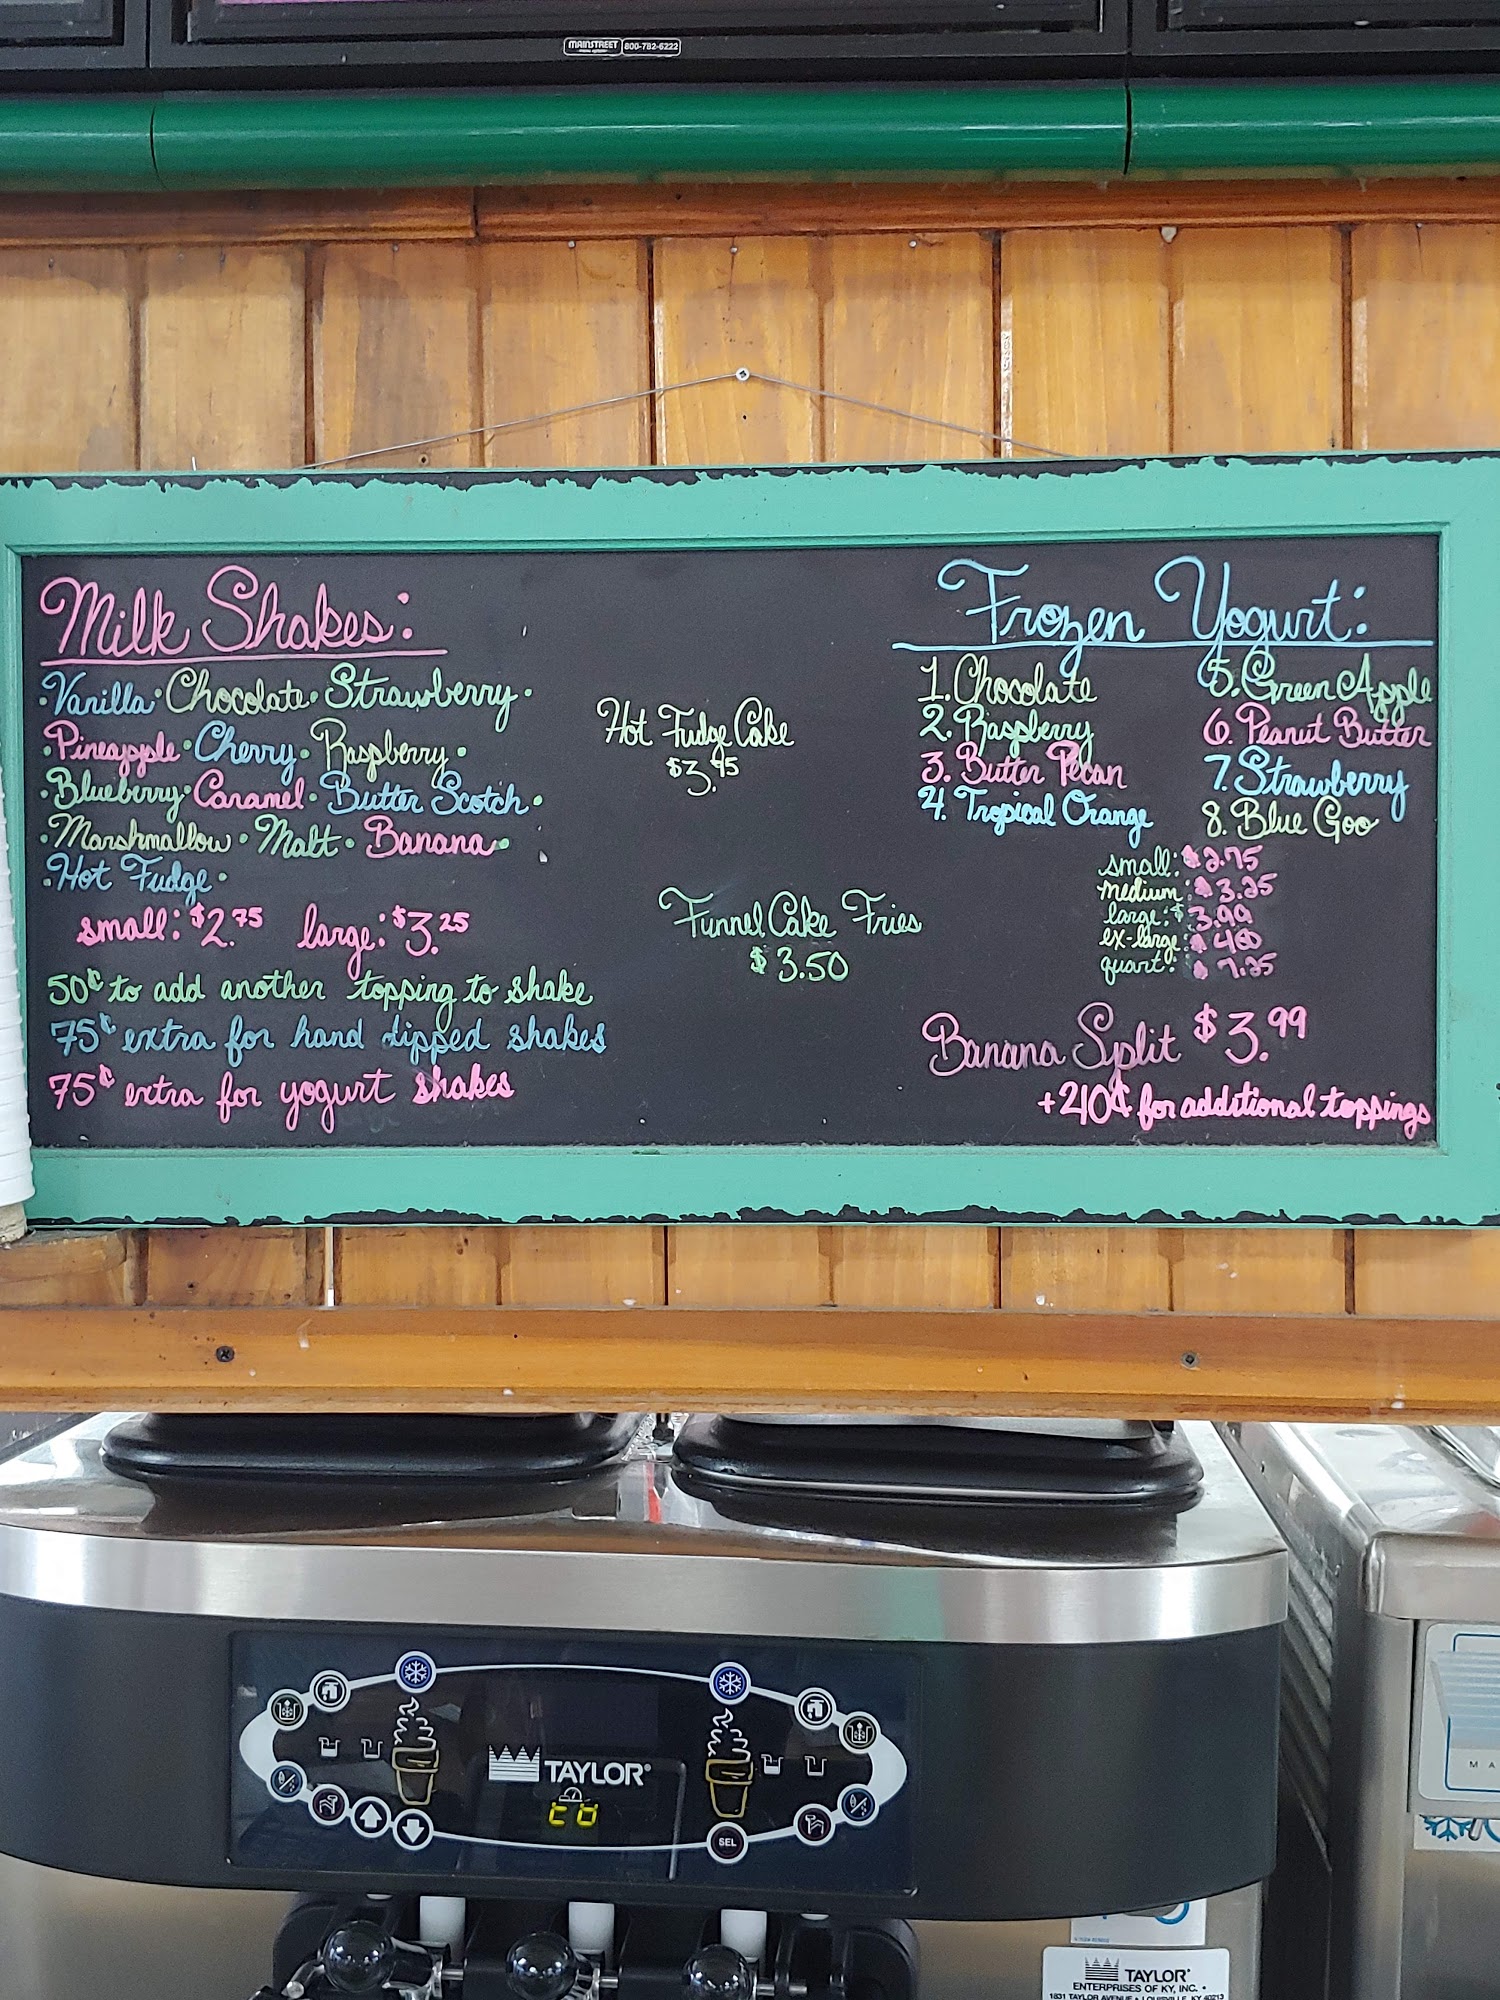 MAINSTREET 800-782-6222
Milk Shakes:
·Vanilla·Chocolate·Strawberry·
·Pineapple·Cherry·Raspberry·
·Blueberry·Caramel·Butter Scotch·
·Marshmallow·Malt·Banana·
·Hot Fudge·
small: $2.75 large: $3.25
50¢ to add another topping to shake
75¢ extra for hand dipped shakes
75¢ extra for yogurt shakes
Hot Fudge Cake
Funnel Cake Fries
$3.50
Frozen Yogurt:
1. Chocolate
2. Raspberry
3. Butter Pecan
4. Tropical Orange
5. Green Apple
6. Peanut Butter
7. Strawberry
8. Blue Goo
small: $2.75
medium: $3.25
large: $3.99
ex-large
quart: $7.25
Banana Split $3.99
+ for additional toppings
TAYLOR®
SEL
TAYLOR®
ENTERPRISES OF KY, INC. •
1831 TAYLOR AVENUE • LOUISVILLE, KY 40213